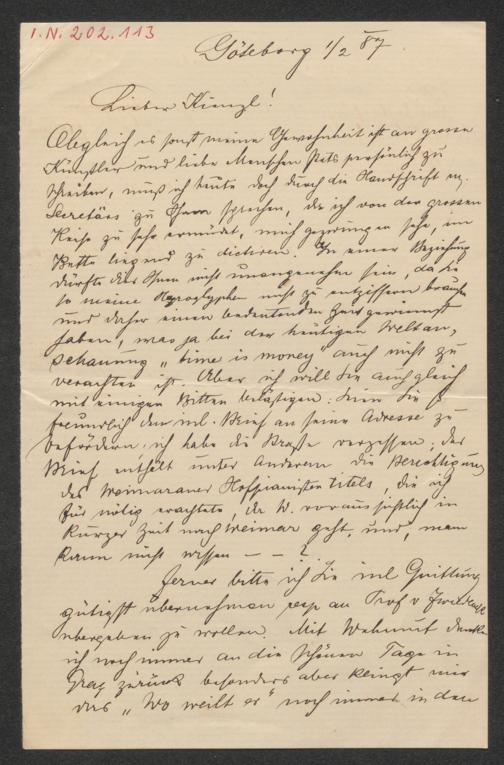 I.N. 202.113
Göteborg 1/2 87.
Lieber Kienzl!
Obgleich es sonst meine Gewohnheit ist an grosse
Künstler und liebe Menschen stets persönlich zu
schreiben, muß ich heute doch durch die Handschrift m.
Secretärs zu Ihnen sprechen, da ich von der grossen
Reise zu sehr ermüdet, mich gezwungen sehe, im
Bette liegend zu dictiren. In einer Beziehung
dürfte dies Ihnen nicht unangenehm sein, da Sie
so meine Hyroglyphen nicht zu entziffern brauchen
und daher einen bedeutenden Zeitgewinnst
haben, was ja bei der heutigen Weltan-
schauung „time is money" auch nicht zu
verachten ist. Aber ich will Sie auch gleich
mit einigen Bitten belästigen: Seien Sie so
freundlich den inl. Brief an seine Adresse zu
befördern, ich habe die Straße vergessen; der
Brief enthält unter Anderem die Berichtigung
des Weimaraner Hofpianisten titels, die ich
für nötig erachtete, da W. voraussichtlich in
kurzer Zeit nach Weimar geht, und, man
kann nicht wissen – – ?
Ferner bitte ich Sie inl Quittung
gütigst übernehmen resp an Prof v
übergeben zu wollen. Mit Wehmut denke
ich noch immer an die schönen Tage in
Graz zurück besonders aber klingt mir
das „Wo weilt er" noch immer in den